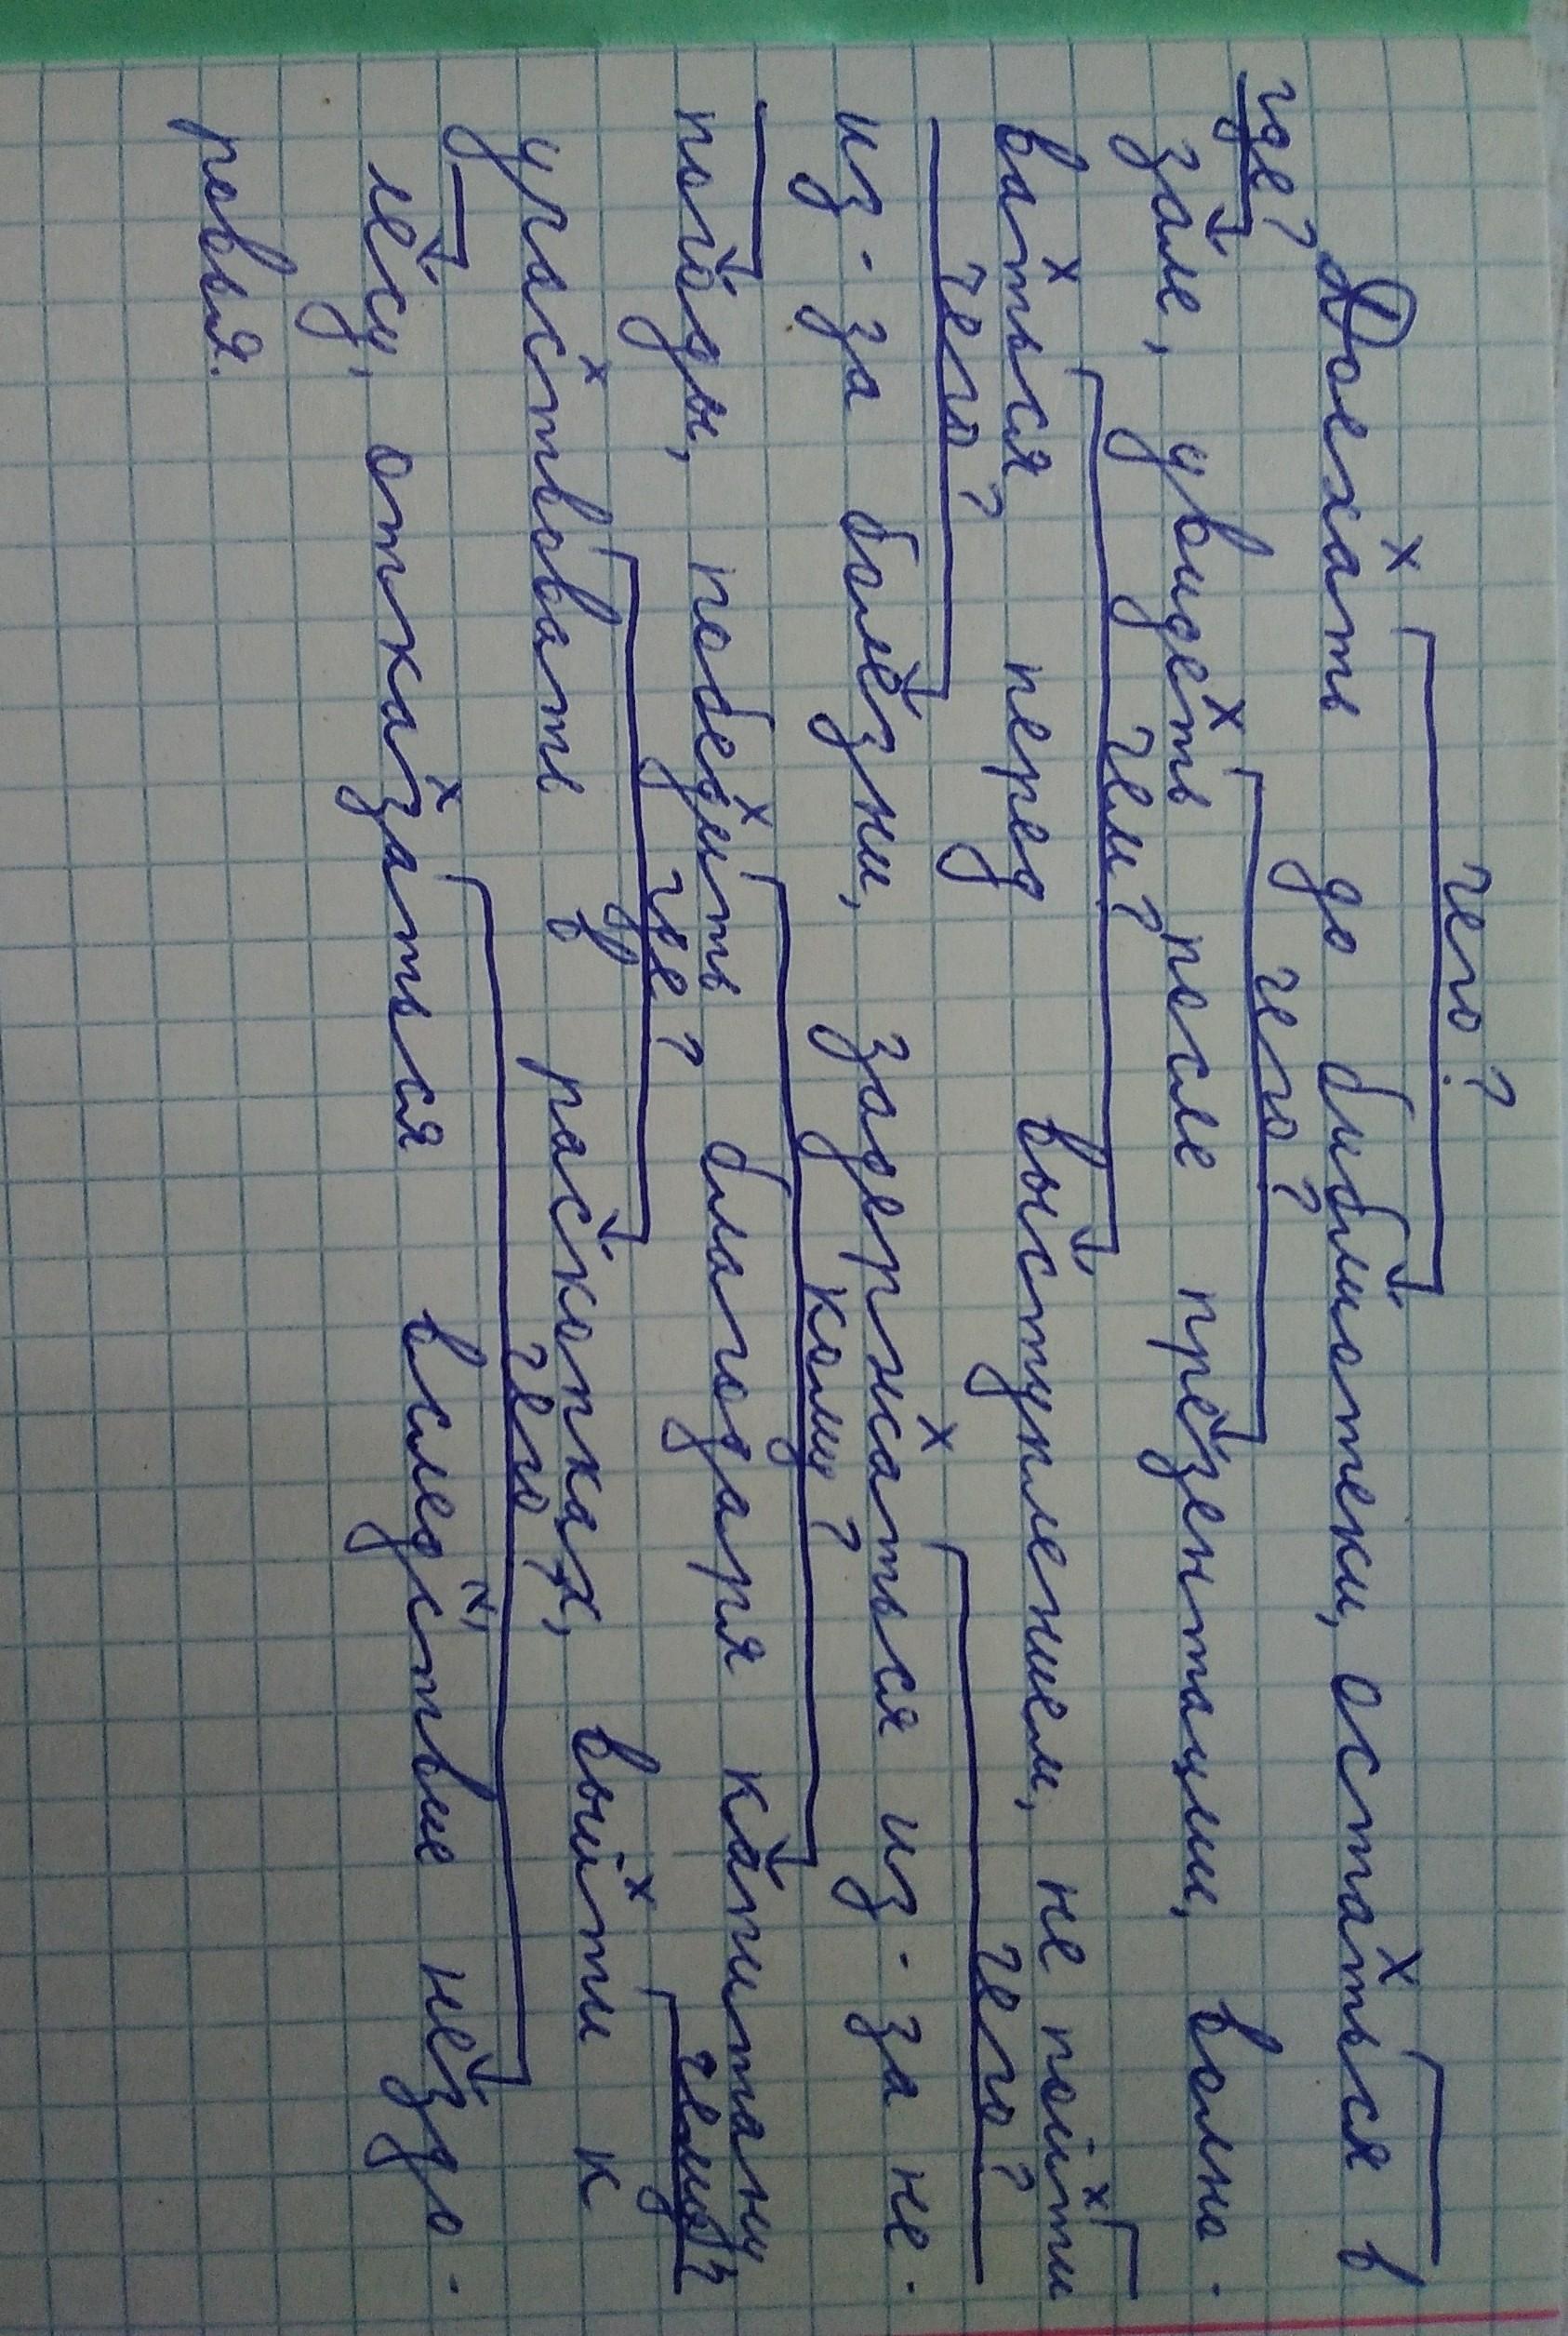 чего?
Доехать до библиотеки, остаться в
где? чего?
зале, увидеть после презентации, волно-
чем?
ваться перед выступлением, не пойти
чего? чего?
из-за болезни, задержаться из-за не-
кому?
погоды, победить благодаря капитану
где? чему?
участвовать в раскопках, выйти к
чего?
лесу, отказаться вследствие нездо-
ровья.